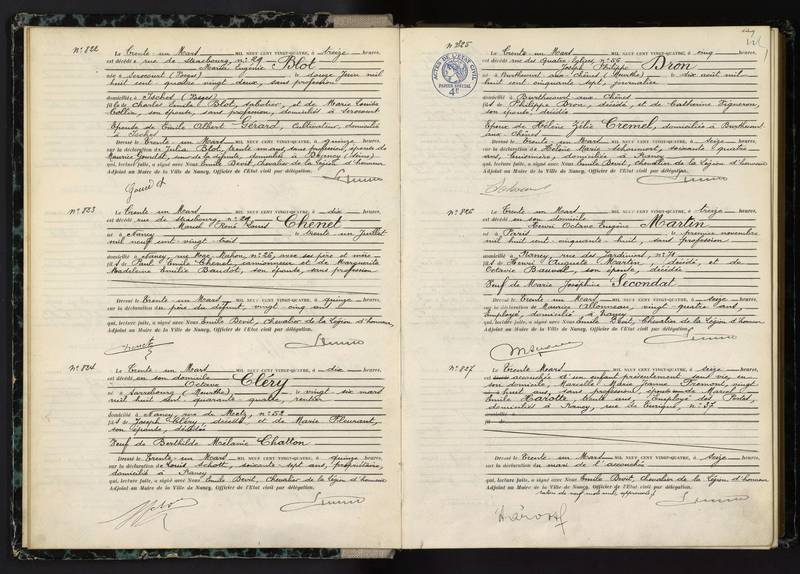 N° 822
Le Trente-un Mars MIL NEUF CENT VINGT-QUATRE, à treize heures,
est décédée rue de Strasbourg, n° 29
Marthe Eugénie Blot
née à Serocourt (Vosges), le douze Juin mil
huit cent quatre vingt deux, sans profession
domiciliée à Ische (Vosges)
fille de Charles Emile Blot, sabotier, et de Marie Louise
Collin, son épouse, sans profession, domiciliés à Serocourt
Epouse de Emile Albert Gérard, Cultivateur, domicilié
à Ische
Dressé le Trente-un Mars MIL NEUF CENT VINGT-QUATRE, à quinze heures,
sur la déclaration de Julia Blot, trente un ans, sans profession, épouse de
Maurice domiciliée à
qui, lecture faite, a signé avec Nous Emile Bevit, Chevalier de la Légion d'honneur
Adjoint au Maire de la Ville de Nancy, Officier de l'Etat civil par délégation.
N° 823
Le Trente-un Mars MIL NEUF CENT VINGT-QUATRE, à dix heures,
est décédé rue de Strasbourg, n° 29
Marcel René Louis Chenet
né à Nancy, le trente un Juillet
mil neuf cent vingt trois
domicilié à Nancy, rue Mac-Mahon, n° 26, avec ses père et mère
fils de Paul Emile Chenet, camionneur et de Marguerite
Madeleine Emilie Baudot, son épouse, sans profession
Dressé le Trente-un Mars MIL NEUF CENT VINGT-QUATRE, à quinze heures,
sur la déclaration du père du défunt, vingt cinq ans
qui, lecture faite, a signé avec Nous Emile Bevit, Chevalier de la Légion d'honneur,
Adjoint au Maire de la Ville de Nancy, Officier de l'Etat civil par délégation.
Chenet
N° 824
Le Trente-un Mars MIL NEUF CENT VINGT-QUATRE, à dix heures,
est décédé en son domicile
Octave Cléry
né à Sarrebourg (Meurthe), le vingt six mars
mil huit cent quarante quatre, rentier
domicilié à Nancy, rue de Metz, n° 52
fils de Joseph Cléry, décédé et de Marie Fleurant,
son épouse, décédée
Veuf de Berthilde Mélanie Chatton
Dressé le Trente-un Mars MIL NEUF CENT VINGT-QUATRE, à quinze heures,
sur la déclaration de Louis Schott, soixante-sept ans, propriétaire,
domicilié à Nancy
qui, lecture faite, a signé avec Nous Emile Bevit, Chevalier de la Légion d'honneur
Adjoint au Maire de la Ville de Nancy, Officier de l'Etat civil par délégation.
N° 825
ACTES DE L'ETAT CIVIL
PAPIER SPECIAL
4F
Le Trente-un Mars MIL NEUF CENT VINGT-QUATRE, à cinq heures,
est décédé rue des Quatre Eglises, n° 56
Joseph Philippe Bron
né à Burthecourt aux chênes (Meurthe), le dix août mil
huit cent cinquante sept, journalier
domicilié à Burthecourt aux chênes
fils de Philippe Bron, décédé, et de Catherine Vigneron,
son épouse, décédée
Epoux de Hélène Zélie Cremel, domiciliée à Burthecourt
aux chênes
Dressé le Trente-un Mars MIL NEUF CENT VINGT-QUATRE, à seize heures,
sur la déclaration de Hélène Marie soixante quatre
ans, domiciliée à Nancy
qui, lecture faite, a signé avec Nous Emile Bevit, Chevalier de la Légion d'honneur
Adjoint au Maire de la Ville de Nancy, Officier de l'Etat civil par délégation.
N° 826
Le Trente-un Mars MIL NEUF CENT VINGT-QUATRE, à treize heures,
est décédé en son domicile
Henri Octave Eugène Martin
né à Paris, le premier novembre
mil huit cent cinquante huit, sans profession
domicilié à Nancy, rue des Jardiniers, n° 70
fils de Henri Auguste Martin, décédé, et de
Octavie son épouse, décédée
Veuf de Marie Joséphine Secondat
Dressé le Trente-un Mars MIL NEUF CENT VINGT-QUATRE, à seize heures,
sur la déclaration de Maurice vingt quatre ans,
Employé, domicilié à Nancy
qui, lecture faite, a signé avec Nous Emile Bevit, Chevalier de la Légion d'honneur
Adjoint au Maire de la Ville de Nancy, Officier de l'Etat civil par délégation.
N° 827
Le Trente-un Mars MIL NEUF CENT VINGT-QUATRE, à seize heures,
est accouchée d'un enfant présentement sans vie en
son domicile, Marcelle Marie Jeanne Fremont, vingt
huit ans, sans profession, épouse de Marcel
Emile Harotte, trente ans, Employé des Postes,
domiciliés à Nancy, rue de n° 37
Dressé le Trente-un Mars MIL NEUF CENT VINGT-QUATRE, à seize heures,
sur la déclaration du mari de l'accouchée
qui, lecture faite, a signé avec Nous Emile Bevit, Chevalier de la Légion d'honneur
Adjoint au Maire de la Ville de Nancy, Officier de l'Etat civil par délégation.
Harotte